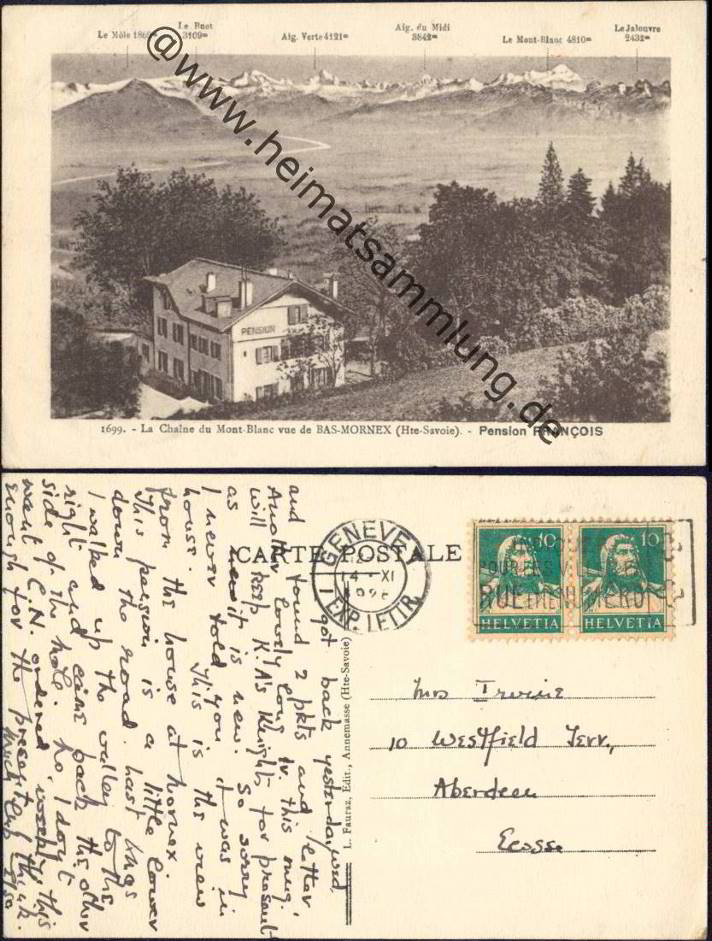 Le Môle 1869m
Le Buet
3109m
Aig. Verte 4121m
Aig. du Midi
3842m
Le Mont-Blanc 4810m
Le Jalouvre
2432m
@www.heimatsammlung.de
PENSION
1699. - La Chaîne du Mont-Blanc vue de BAS-MORNEX (Hte-Savoie). - Pension FRANÇOIS
CARTE POSTALE
GENEVE 1
4 XI
EXP. LETTR.
10 10
HELVETIA HELVETIA
L. Fauraz, Edit., Annemasse (Hte-Savoie)
Mrs Irvine
10 Westfield Terr.,
Aberdeen
Ecosse
got back yesterday
and found 2 pkts and letter.
Another lovely long this mug.
will keep K.A's for
as it is new. So sorry
I never told you it was in
house. This is the view
from the house at Mornex.
This pension is a little lower
down the road. Last
I walked up the valley to the
right and came back the other
side of the hole. No, I don't
want C.N. ordered this
enough for the present I think.
Much love